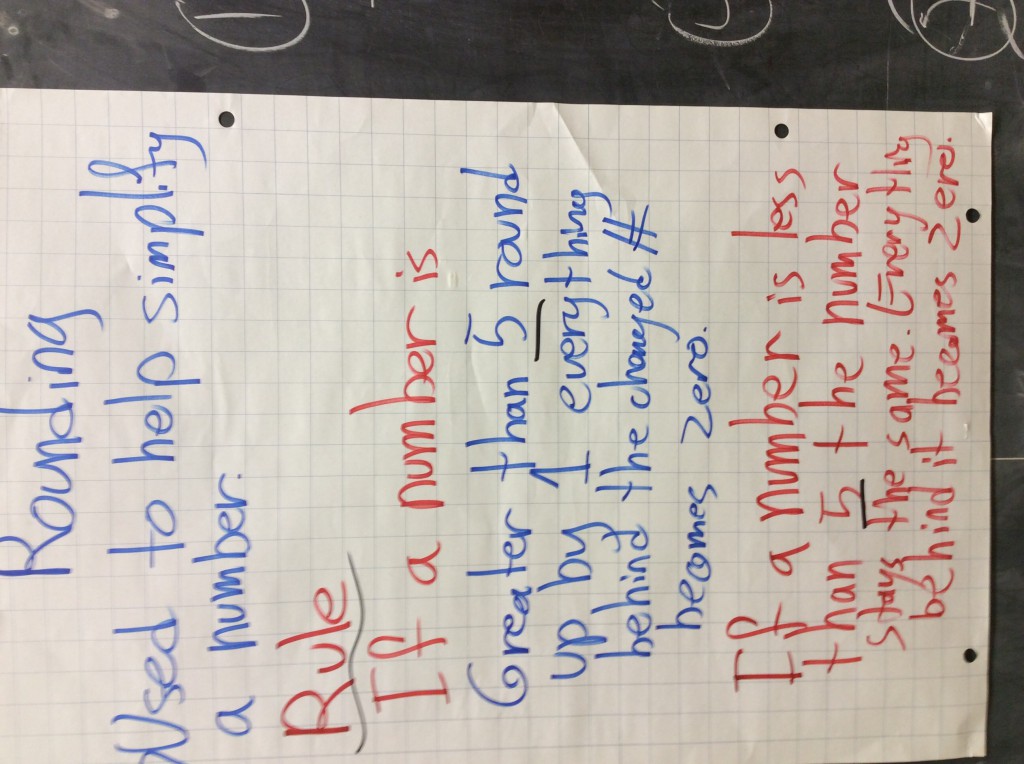 Rounding
Used to help simplify
a number.
Rule
If a number is
Greater than 5 round
up by 1 everything
behind the changed #
becomes zero.
If a number is less
than 5 the number
stays the same. Everything
behind it becomes zero.